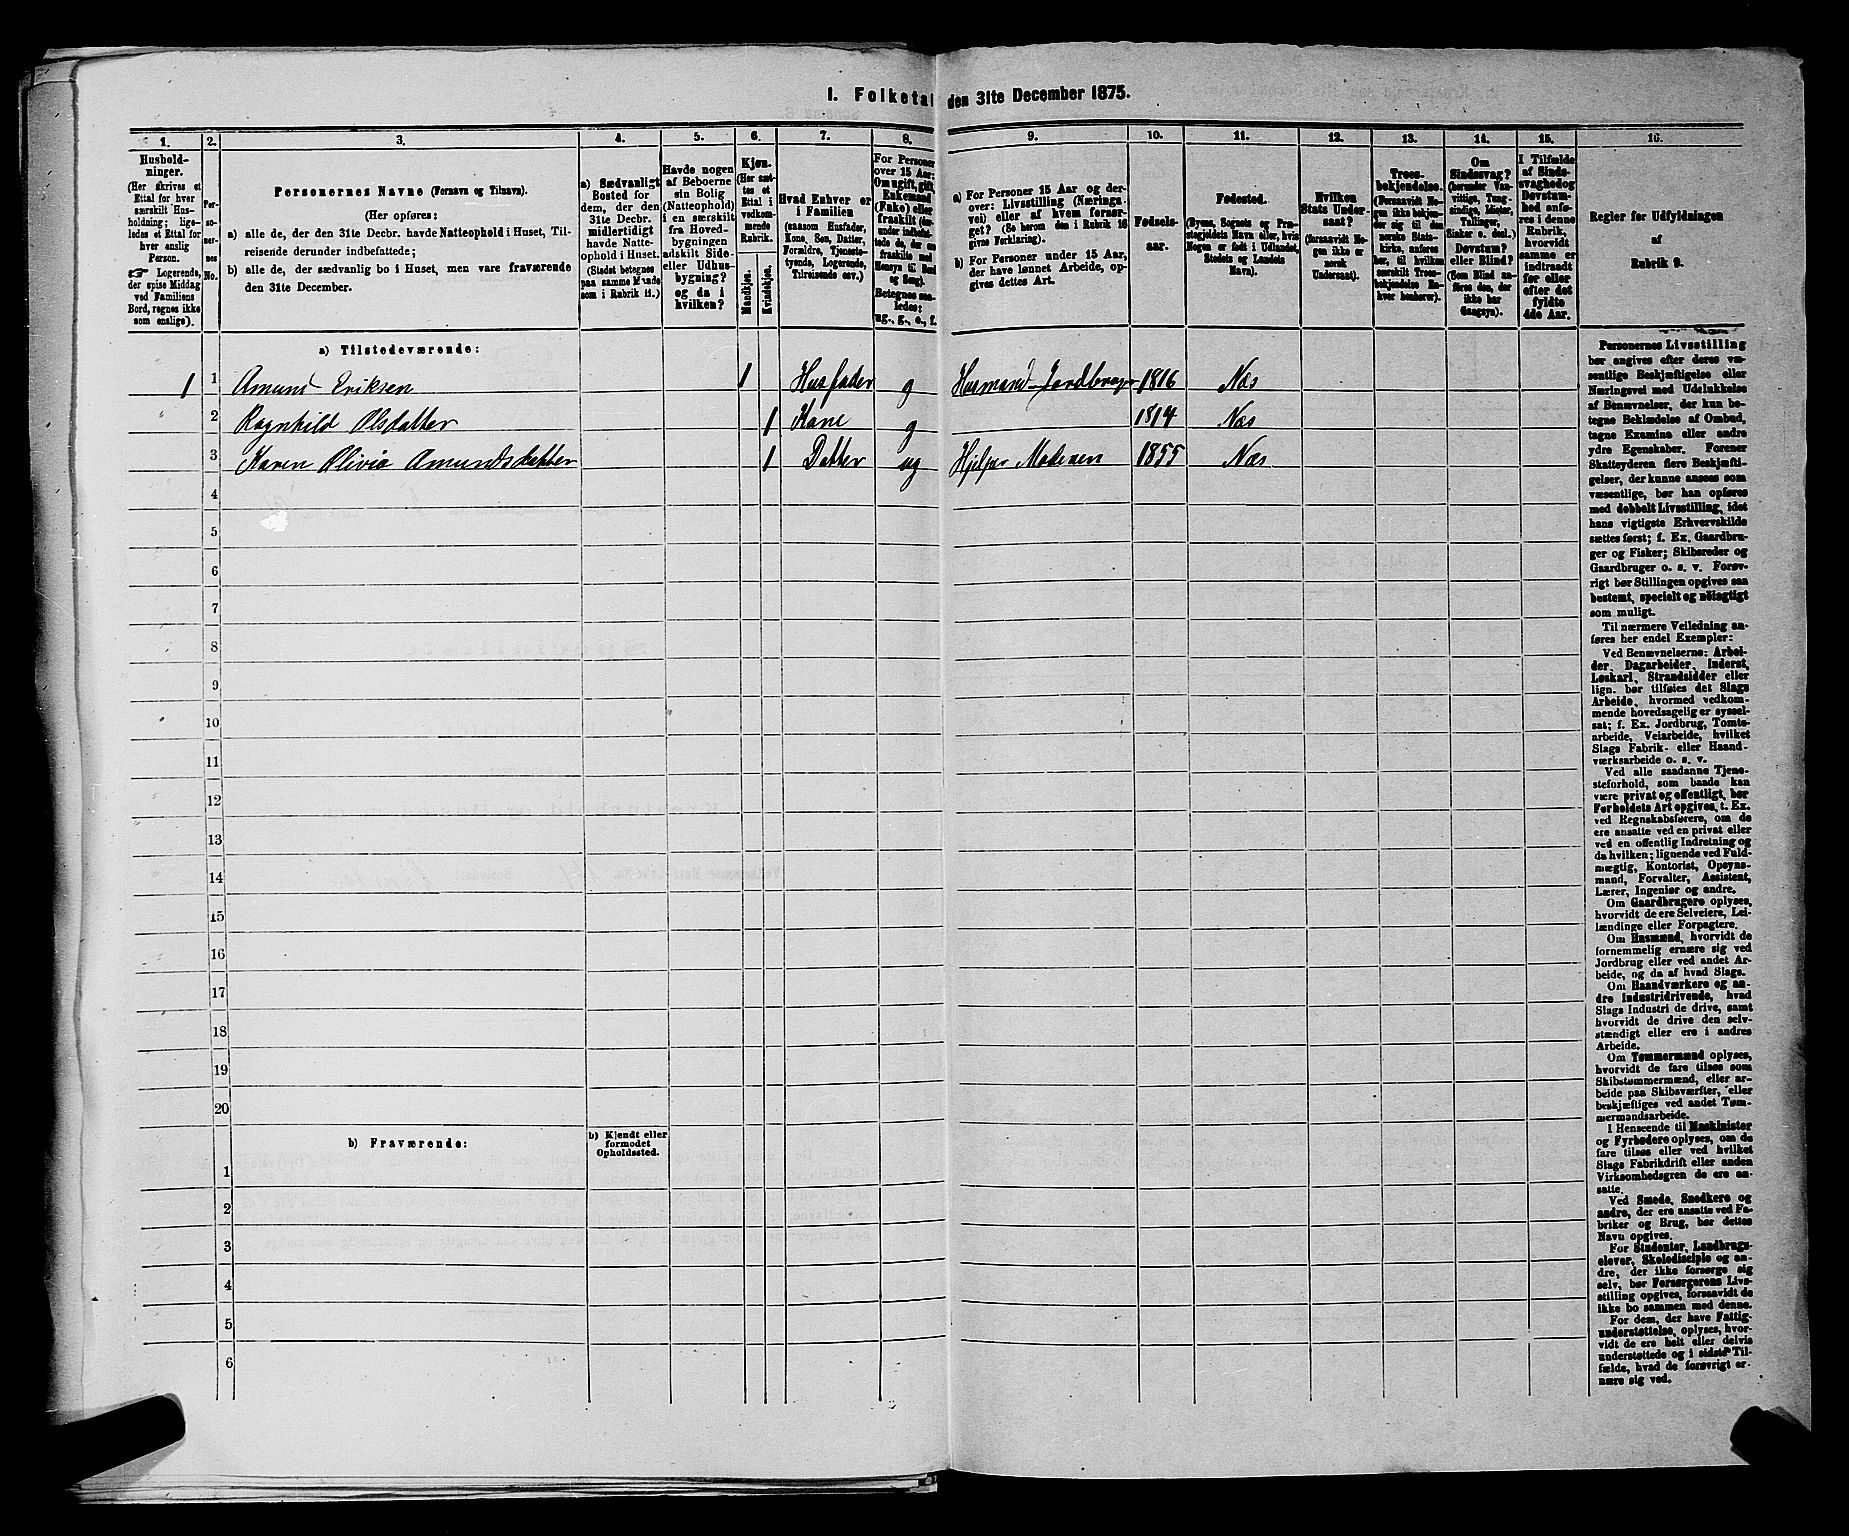 I. Folketal den 31te December 1875.
1. 2. 3. 4. 5. 6. 7. 8. 9. 10. 11. 12. 13. 14. 15. 16.
Hushold-
ninger.
(Her skrives et
Ettal for hver
særskilt Hus-
holdning; lige-
ledes et Ettal for
hver enslig
Person.
☞ Logerende,
der spise Middag
ved Familiens
Bord, regnes ikke
som enslige).
Per-
so-
ner-
nes
No.
Personernes Navne (Fornavn og Tilnavn).
(Her opføres:
a) alle de, der den 31te Decbr. havde Natteophold i Huset, Til-
reisende derunder indbefattede;
b) alle de, der sædvanlig bo i Huset, men vare fraværende
den 31te December.
a) Sædvanligt
Bosted for
dem, der den
31te Decbr.
midlertidigt
havde Natte-
ophold i Huset.
(Stedet betegnes
paa samme Maade
som i Rubrik 11.)
Havde nogen
af Beboerne
sin Bolig
(Natteophold)
i en særskilt
fra Hoved-
bygningen
adskilt Side-
eller Udhus-
bygning?
og da i
hvilken?
Kjøn.
(Her sæt-
tes et
Ettal i
vedkom-
mende
Rubrik.
Mandkjøn.
Kvindekjøn.
Hvad Enhver er
i Familien
(saasom Husfader,
Kone, Søn, Datter,
Forældre, Tjeneste-
tyende, Logerende,
Tilreisende osv.)
For Personer
over 15 Aar:
Om ugift, gift,
Enkemand
(Enke) eller
fraskilt (der-
under indbefat-
tede de, der ere
fraskilte med
Hensyn til Bord
og Seng).
Betegnes saa-
ledes:
ug., g., e., f.
a) For Personer 15 Aar og der-
over: Livsstilling (Nærings-
vei) eller af hvem forsør-
get? (Se herom den i Rubrik 16
givne Forklaring).
b) For Personer under 15 Aar,
der have lønnet Arbeide, op-
gives dettes Art.
Fødsels-
aar.
Fødested.
(Byens, Sognets og Præ-
stegjeldets Navn eller, hvis
Nogen er født i Udlandet,
Stedets og Landets
Navn).
Hvilken
Stats Under-
saat?
(forsaavidt No-
gen ikke er
norsk
Undersaat).
Troes-
bekjendelse.
(Forsaavidt No-
gen ikke bekjen-
der sig til den
norske Stats-
kirke, anføres
her, til hvilken
særskilt Troes-
bekjendelse En-
hver henhører).
Om
Sindssvag?
(herunder Van-
vittige, Tung-
sindige, Idioter,
Tullinger,
Sinker o. desl.)
Døvstum?
eller Blind?
(Som Blind an-
føres den, der
ikke har
Gangsyn).
I Tilfælde
af Sinds-
svaghed og
Døvstum-
hed anfø-
res i denne
Rubrik,
hvorvidt
samme er
indtraadt
før eller
efter det
fyldte
4de Aar.
Regler for Udfyldningen
af
Rubrik 9.
a) Tilstedeværende:
1 1 Amund Eriksen 1 Husfader g Husmand Jordbruger 1816 Næs
2 Ragnhild Olsdatter 1 Kone g 1814 Næs
3 Karen Olivia Amundsdatter 1 Datter ug Hjelper Moderen 1855 Næs
4
5
6
7
8
9
10
11
12
13
14
15
16
17
18
19
20
b) Fraværende:
b) Kjendt eller
formodet
Opholdssted.
1
2
3
4
5
6
Personernes Livsstilling
bør angives efter deres væ-
sentlige Beskjæftigelse eller
Næringsvei med Udelukkelse
af Benævnelser, der kun be-
tegne Beklædelse af Ombud,
tagne Examina eller andre
ydre Egenskaber. Forener
Skatteyderen flere Beskjæfti-
gelser, der kunne ansees som
væsentlige, bør han opføres
med dobbelt Livsstilling, idet
hans vigtigste Erhvervskilde
sættes først; f. Ex. Gaardbru-
ger og Fisker; Skibsreder og
Gaardbruger o. s. v. Forøv-
rigt bør Stillingen opgives saa
bestemt, specielt og nøiagtigt
som muligt.
Til nærmere Veiledning an-
føres her endel Exempler:
Ved Benævnelserne: Arbei-
der, Dagarbeider, Inderst,
Løskarl, Strandsidder eller
lign. bør tilføies det Slags
Arbeide, hvormed vedkom-
mende hovedsagelig er syssel-
sat; f. Ex. Jordbrug, Tomte-
arbeide, Veiarbeide, hvilket
Slags Fabrik- eller Haand-
værksarbeide o. s. v.
Ved alle saadanne Tjene-
steforhold, som baade kan
være privat og offentligt, bør
Forholdets Art opgives, t. Ex.
ved Regnskabsførere, om de
ere ansatte ved en privat eller
ved en offentlig Indretning og
da hvilken; lignende ved Fuld-
mægtig, Kontorist, Opsyns-
mand, Forvalter, Assistent,
Lærer, Ingeniør og andre.
Om Gaardbrugere oplyses,
hvorvidt de ere Selveiere, Lei-
lændinge eller Forpagtere.
Om Husmænd, hvorvidt de
fornemmelig ernære sig ved
Jordbrug eller ved andet Ar-
beide, og da af hvad Slags.
Om Haandværkere og an-
dre Industridrivende, hvad
Slags Industri de drive, samt
hvorvidt de drive den selv-
stændigt eller ere i andres
Arbeide.
Om Tømmermænd oplyses,
hvorvidt de fare tilsøs som
Skibstømmermænd, eller ar-
beide paa Skibsværfter, eller
beskjæftiges ved andet Tøm-
mermandsarbeide.
I Henseende til Maskinister
og Fyrbødere oplyses, om de
fare tilsøs eller ved hvilket
Slags Fabrikdrift eller anden
Virksomhedsgren de ere an-
satte.
Ved Smede, Snedkere og
andre, der ere ansatte ved Fa-
briker og Brug, bør dettes
Navn opgives.
For Studenter, Landbrugs-
elever, Skoledisciple og an-
dre, der ikke forsørge sig
selv, bør Forsørgerens Livs-
stilling opgives, forsaavidt de
ikke bo sammen med denne.
For dem, der have Fattig-
understøttelse, oplyses, hvor-
vidt de ere helt eller delvis
understøttede og i sidste Til-
fælde, hvad de forøvrigt er-
nære sig ved.